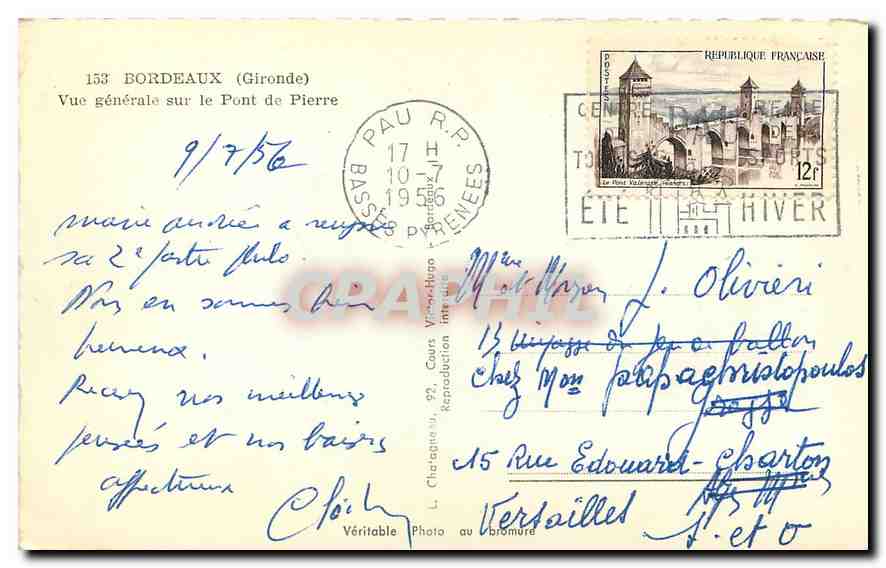 153 BORDEAUX (Gironde)
Vue générale sur le Pont de Pierre
9/7/56
marie andrée a
sa 2e partie philo.
Nous en sommes bien
heureux.
Recevez nos meilleures
pensées et nos baisers
affectueux
PAU R.P.
17 H
10-7
1956
BASSES PYRENEES
REPUBLIQUE FRANÇAISE
POSTES
Le Pont Valentré (Cahors)
12f
ÉTÉ HIVER
L. Chatagneau, 92, Cours Victor-Hugo - Bordeaux
Reproduction interdite
CPARPHIL
Mme et Monsieur J. Olivieri
13 impasse du jeu de ballon
chez Mon papachristopoulos
15 Rue Edouard-Charton
Versailles
S. et O
Véritable Photo au bromure